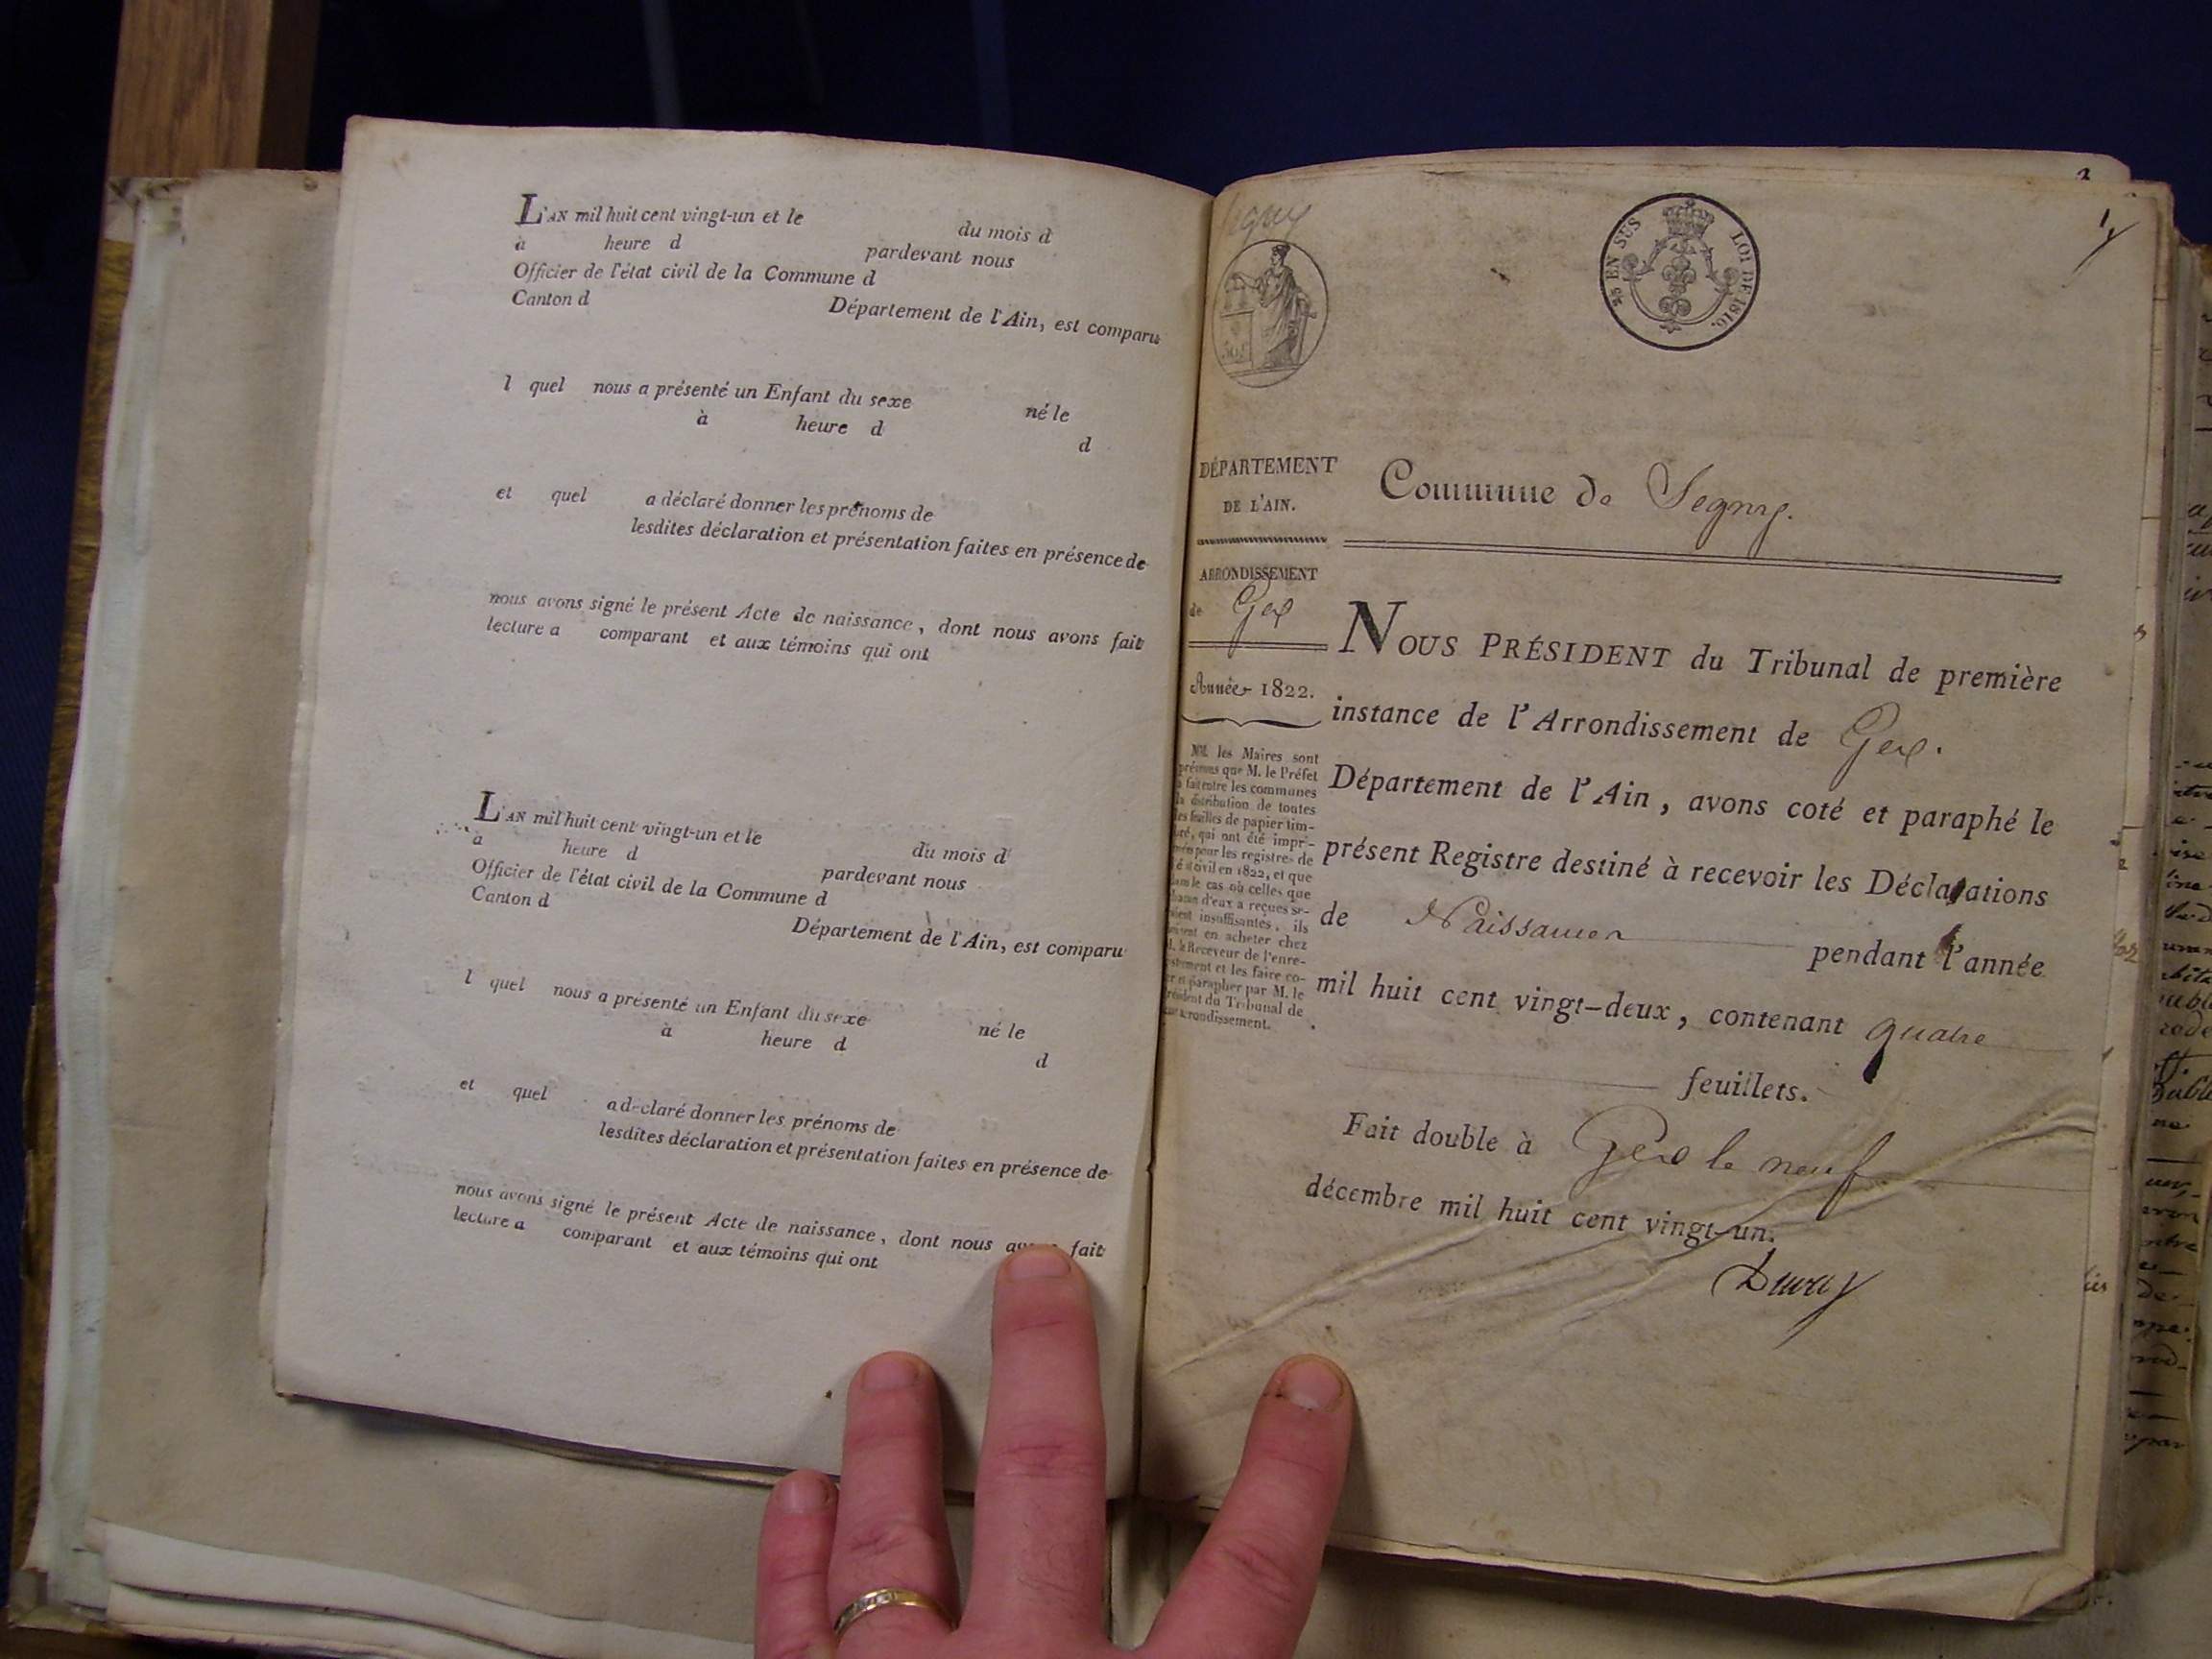 L'AN mil huit cent vingt-un et le du mois d
à heure d pardevant nous
Officier de l'état civil de la Commune d
Canton d Département de l'Ain, est comparu
l quel nous a présenté un Enfant du sexe né le
à heure d
d
et quel a déclaré donner les prénoms de
lesdites déclaration et présentation faites en présence de
nous avons signé le présent Acte de naissance, dont nous avons fait
lecture a comparant et aux témoins qui ont
L'AN mil huit cent vingt-un et le du mois d
à heure d pardevant nous
Officier de l'état civil de la Commune d
Canton d Département de l'Ain, est comparu
l quel nous a présenté un Enfant du sexe né le
à heure d
d
et quel a déclaré donner les prénoms de
lesdites déclaration et présentation faites en présence de
nous avons signé le présent Acte de naissance, dont nous fait
lecture a comparant et aux témoins qui ont
EN SUS LOI DE 1816.
1
DÉPARTEMENT
DE L'AIN.
ARRONDISSEMENT
de Gex
Année 1822.
MM. les Maires sont
prévenus que M. le Préfet
a fait entre les communes
la distribution de toutes
les feuilles de papier tim-
bré, qui ont été impri-
mées pour les registres de
l'état civil en 1822, et que
dans le cas où celles que
chacun d'eux a reçues se-
roient insuffisantes, ils
doivent en acheter chez
M. le Receveur de l'enre-
gistrement et les faire co-
ter et parapher par M. le
Président du Tribunal de
leur arrondissement.
Commune de Segny.
NOUS PRÉSIDENT du Tribunal de première
instance de l'Arrondissement de Gex.
Département de l'Ain, avons coté et paraphé le
présent Registre destiné à recevoir les Déclarations
de Naissances pendant l'année
mil huit cent vingt-deux, contenant quatre
feuillets.
Fait double à Gex le neuf
décembre mil huit cent vingt-un.